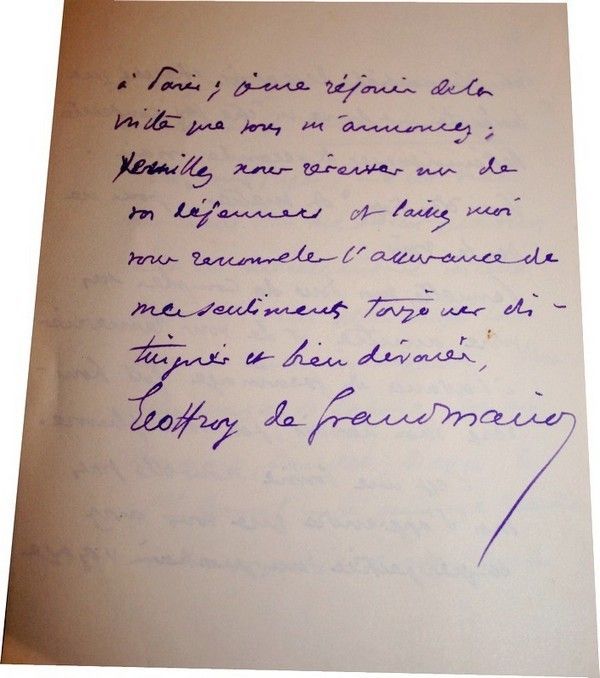 à Paris ; je me réjouis de la
visite que vous m'annoncez ;
veuillez nous réserver un de
vos déjeuners et laissez moi
vous renouveler l'assurance de
mes sentiments toujours dis-
tingués et bien dévoués,
Geoffroy de Grandmaison